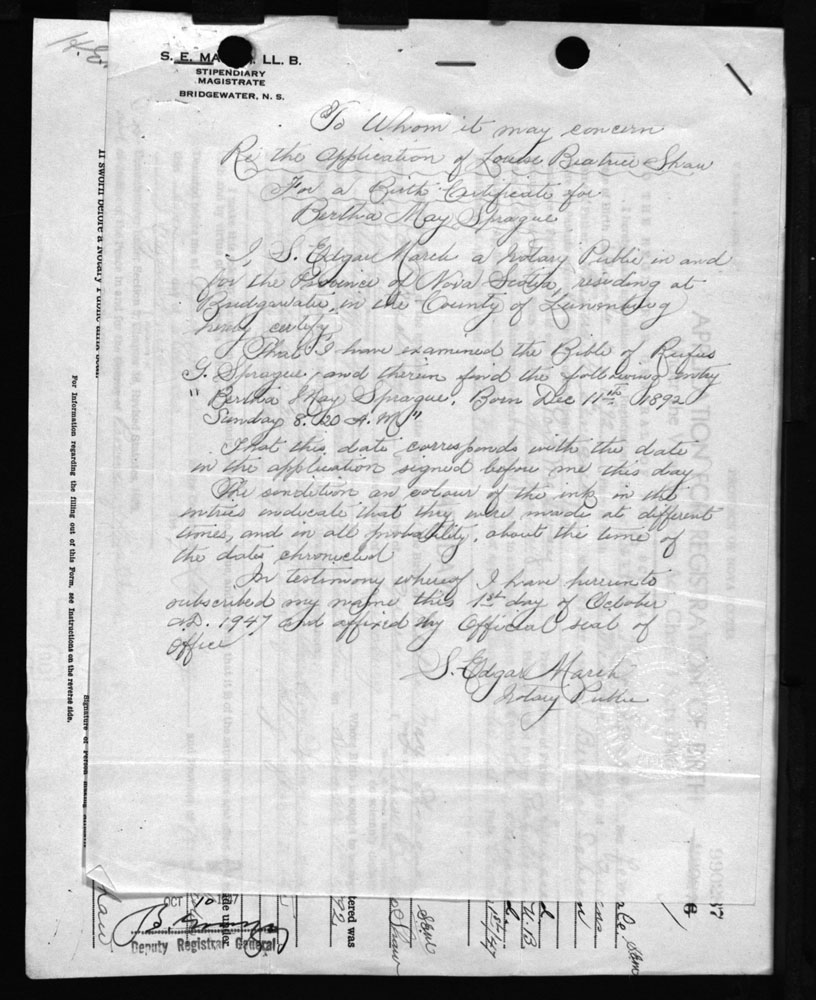 S. E. MA LL. B.
STIPENDIARY
MAGISTRATE
BRIDGEWATER, N. S.
To Whom it may concern
Re the Application of Louise Beatrice Shaw
For a Birth Certificate for
Bertha May Sprague
I, S. Edgar March a Notary Public in and
for the Province of Nova Scotia, residing at
Bridgewater, in the County of Lunenburg
hereby certify
That I have examined the Bible of Rufus
G. Sprague, and therein find the following entry
"Bertha May Sprague, Born Dec 11th 1892
Sunday 8.20 A.M"
That this date corresponds with the date
in the application signed before me this day
The condition an colour of the ink in the
entries indicate that they were made at different
times, and in all probability, about the time of
the dates chronicled
In testimony whereof I have hereunto
subscribed my name this 1st day of October
AD. 1947 and affixed my Official seal of
Office
S. Edgar March
Notary Public
If sworn before a Notary Public
For Information regarding the filling out of this Form, see Instructions on the reverse side.
Signature of Person
APPLICATION FOR REGISTRATION OF BIRTH
OCT 10 1947
Deputy Registrar General
ade under
tered was
Shaw
N.B